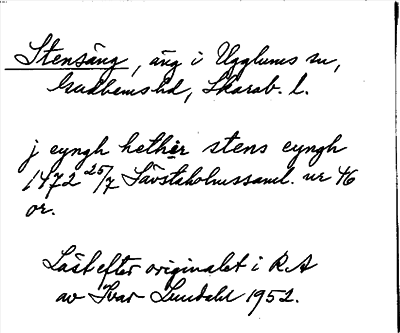 Stensäng, äng i Ugglums sn,
Gudhems hd, Skarab. l.
j eyngh hether stens eyngh
1472 25/7 Sävstaholmssaml. nr 46
or.
Läst efter originalet i R.A
av Ivar Lundahl 1952.